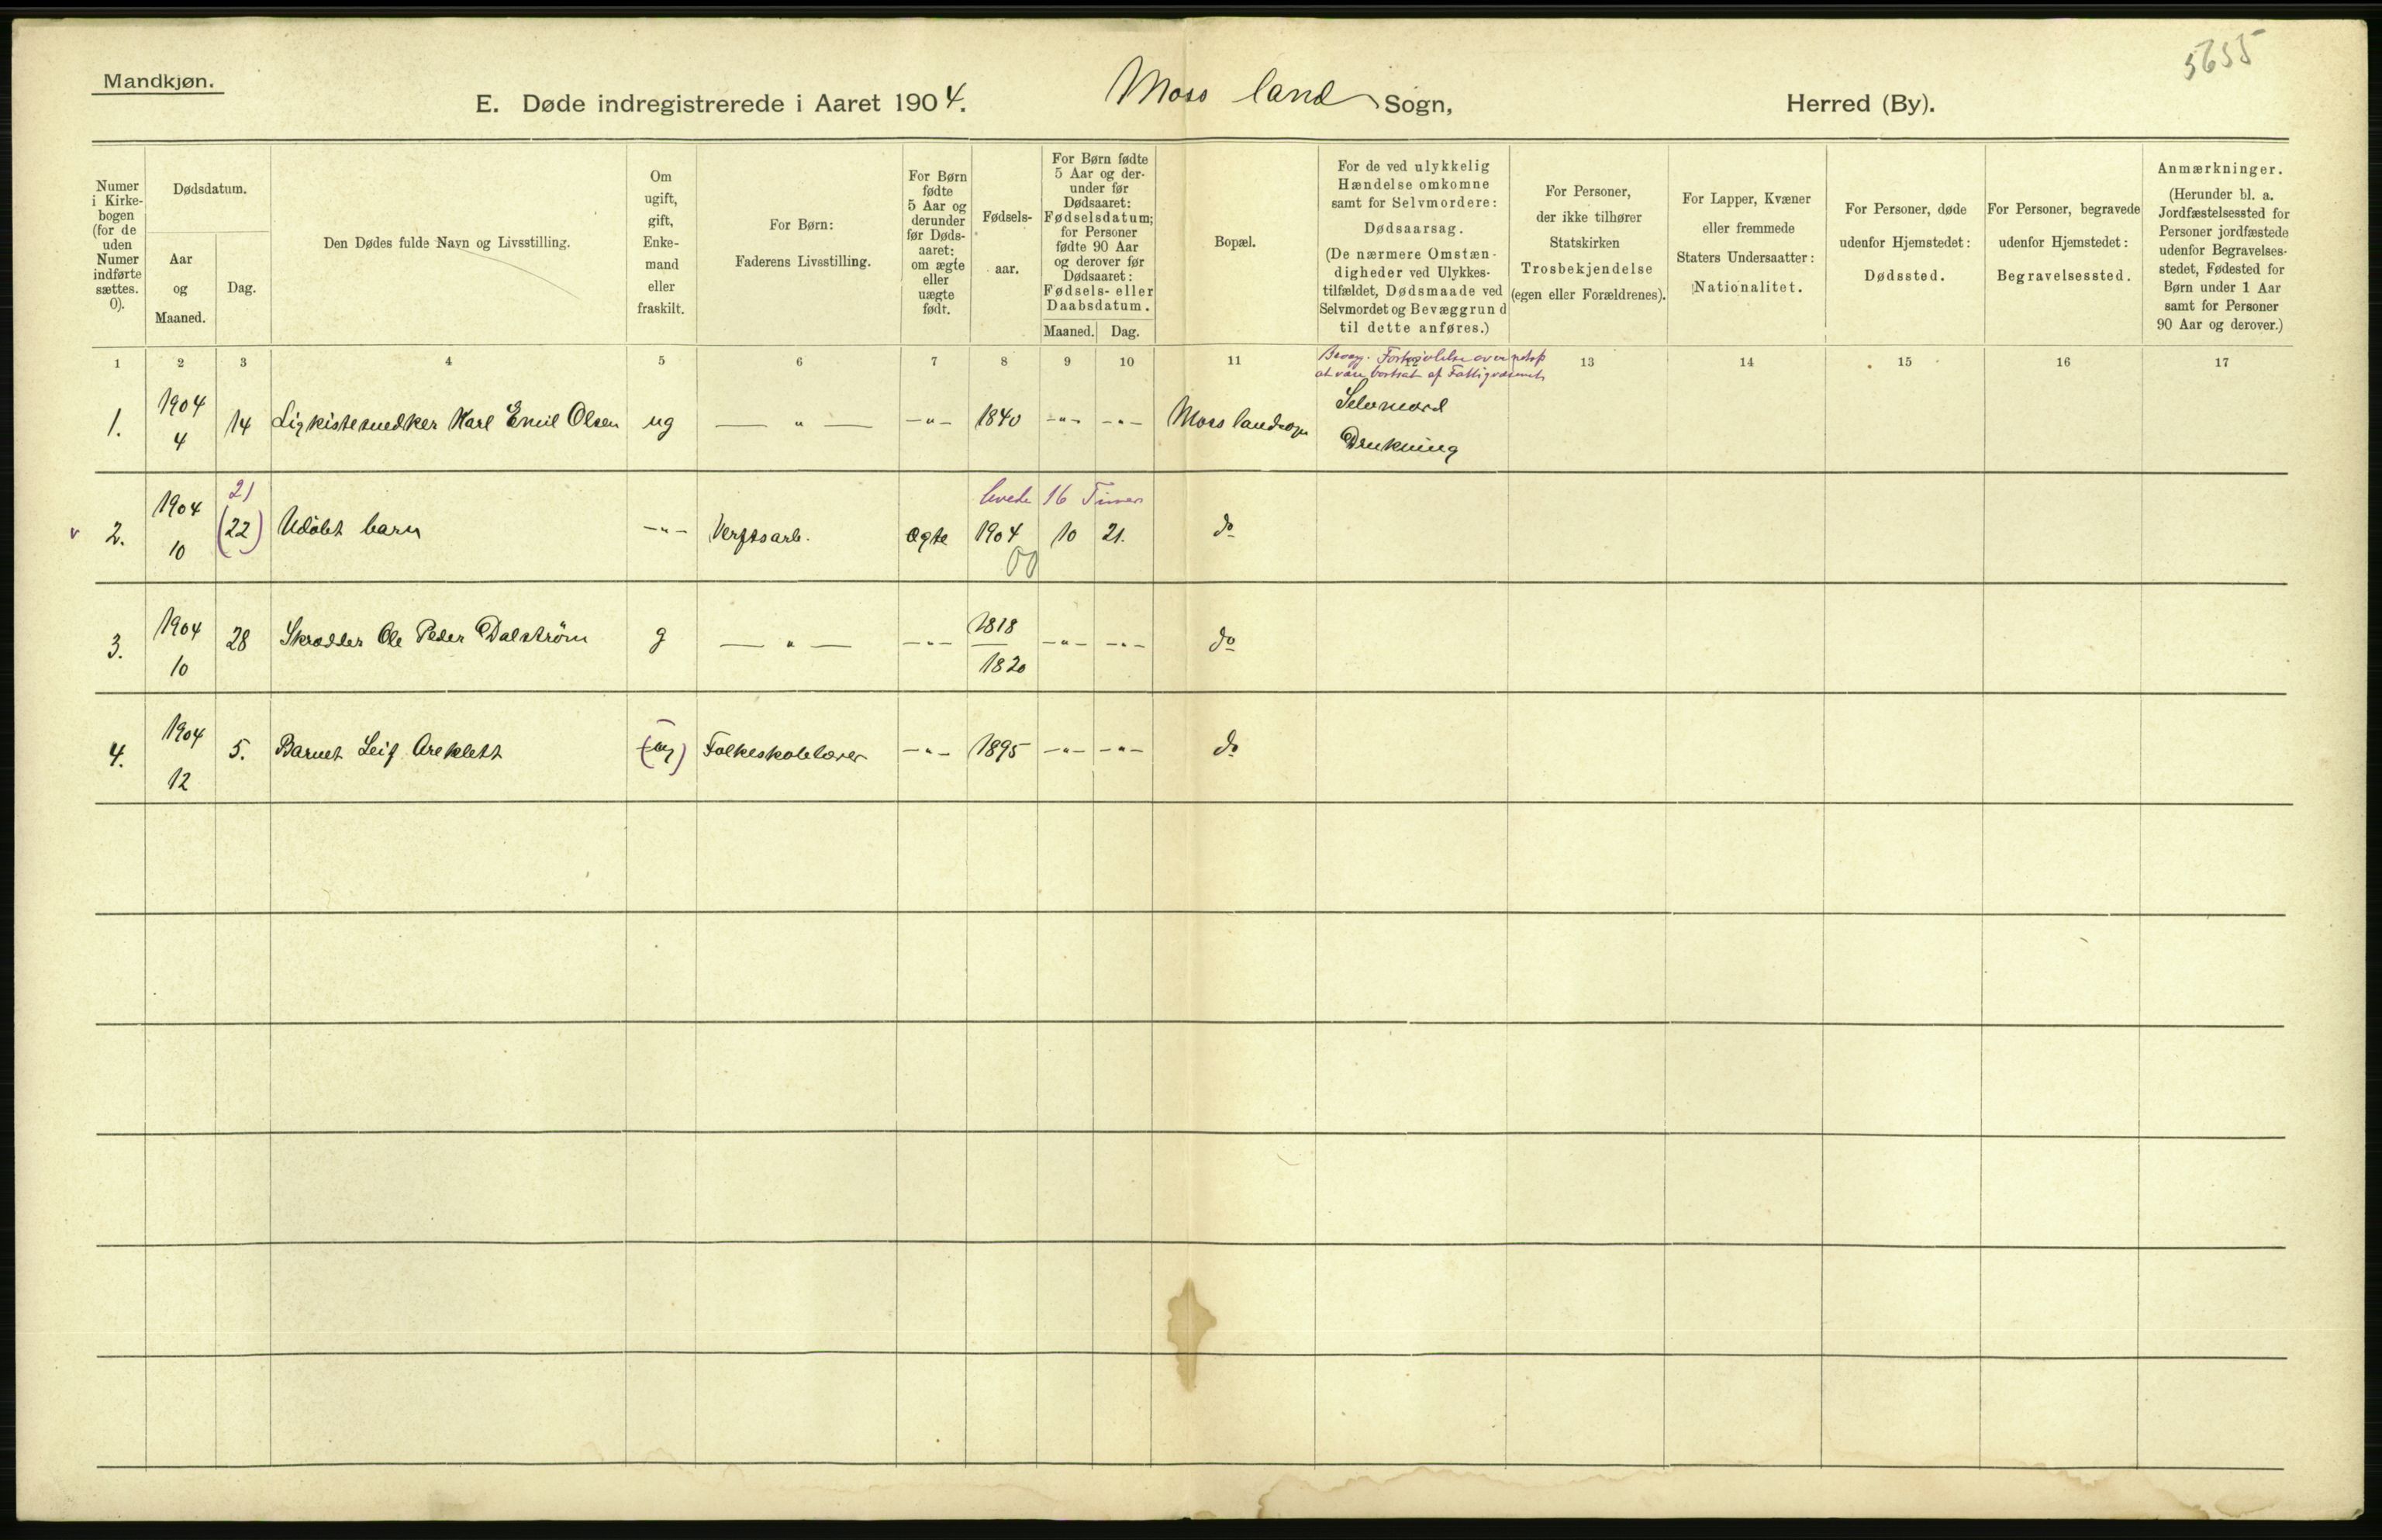 5655
Mandkjøn.
E. Døde indregistrerede i Aaret 1904. Moss land Sogn, Herred (By).
Numer
i Kirke-
bogen
(for de
uden
Numer
indførte
sættes.
0).
Dødsdatum.
Aar
og
Maaned.
Dag.
Den Dødes fulde Navn og Livsstilling.
Om
ugift,
gift,
Enke-
mand
eller
fraskilt.
For Børn:
Faderens Livsstilling.
For Børn
fødte
5 Aar og
derunder
før Døds-
aaret:
om ægte
eller
uægte
født.
Fødsels-
aar.
For Børn fødte
5 Aar og der-
under før
Dødsaaret:
Fødselsdatum;
for Personer
fødte 90 Aar
og derover før
Dødsaaret:
Fødsels- eller
Daabsdatum.
Maaned. Dag.
Bopæl.
For de ved ulykkelig
Hændelse omkomne
samt for Selvmordere:
Dødsaarsag.
(De nærmere Omstæn-
digheder ved Ulykkes-
tilfældet, Dødsmaade ved
Selvmordet og Bevæggrund
til dette anføres.)
For Personer,
der ikke tilhører
Statskirken
Trosbekjendelse
(egen eller Forældrenes).
For Lapper, Kvæner
eller fremmede
Staters Undersaatter:
Nationalitet.
For Personer, døde
udenfor Hjemstedet:
Dødssted.
For Personer, begravede
udenfor Hjemstedet:
Begravelsessted.
Anmærkninger.
(Herunder bl. a.
Jordfæstelsessted for
Personer jordfæstede
udenfor Begravelses-
stedet, Fødested for
Børn under 1 Aar
samt for Personer
90 Aar og derover.)
1 2 3 4 5 6 7 8 9 10 11 12 13 14 15 16 17
Bevæg. Fortvivlelse over
at være bortsat af Fattigvæsenet
1. 1904 4 14 Ligkistesnedker Karl Emil Olsen ug — " — -"- 1840 -"- -"- Moss landsogn Selvmord
Drukning
21 levede 16 Timer
v 2. 1904 10 (22) Udøbt barn -"- Verftsarb. Ægte 1904 10 21. do
00
3. 1904 10 28 Skrædder Ole Peder Dalström g — " — -"- 1818 -"- -"- do
1820
4. 1904 12 5. Barnet Leif Areklett (ug) Folkeskolelærer -"- 1895 -"- -"- do